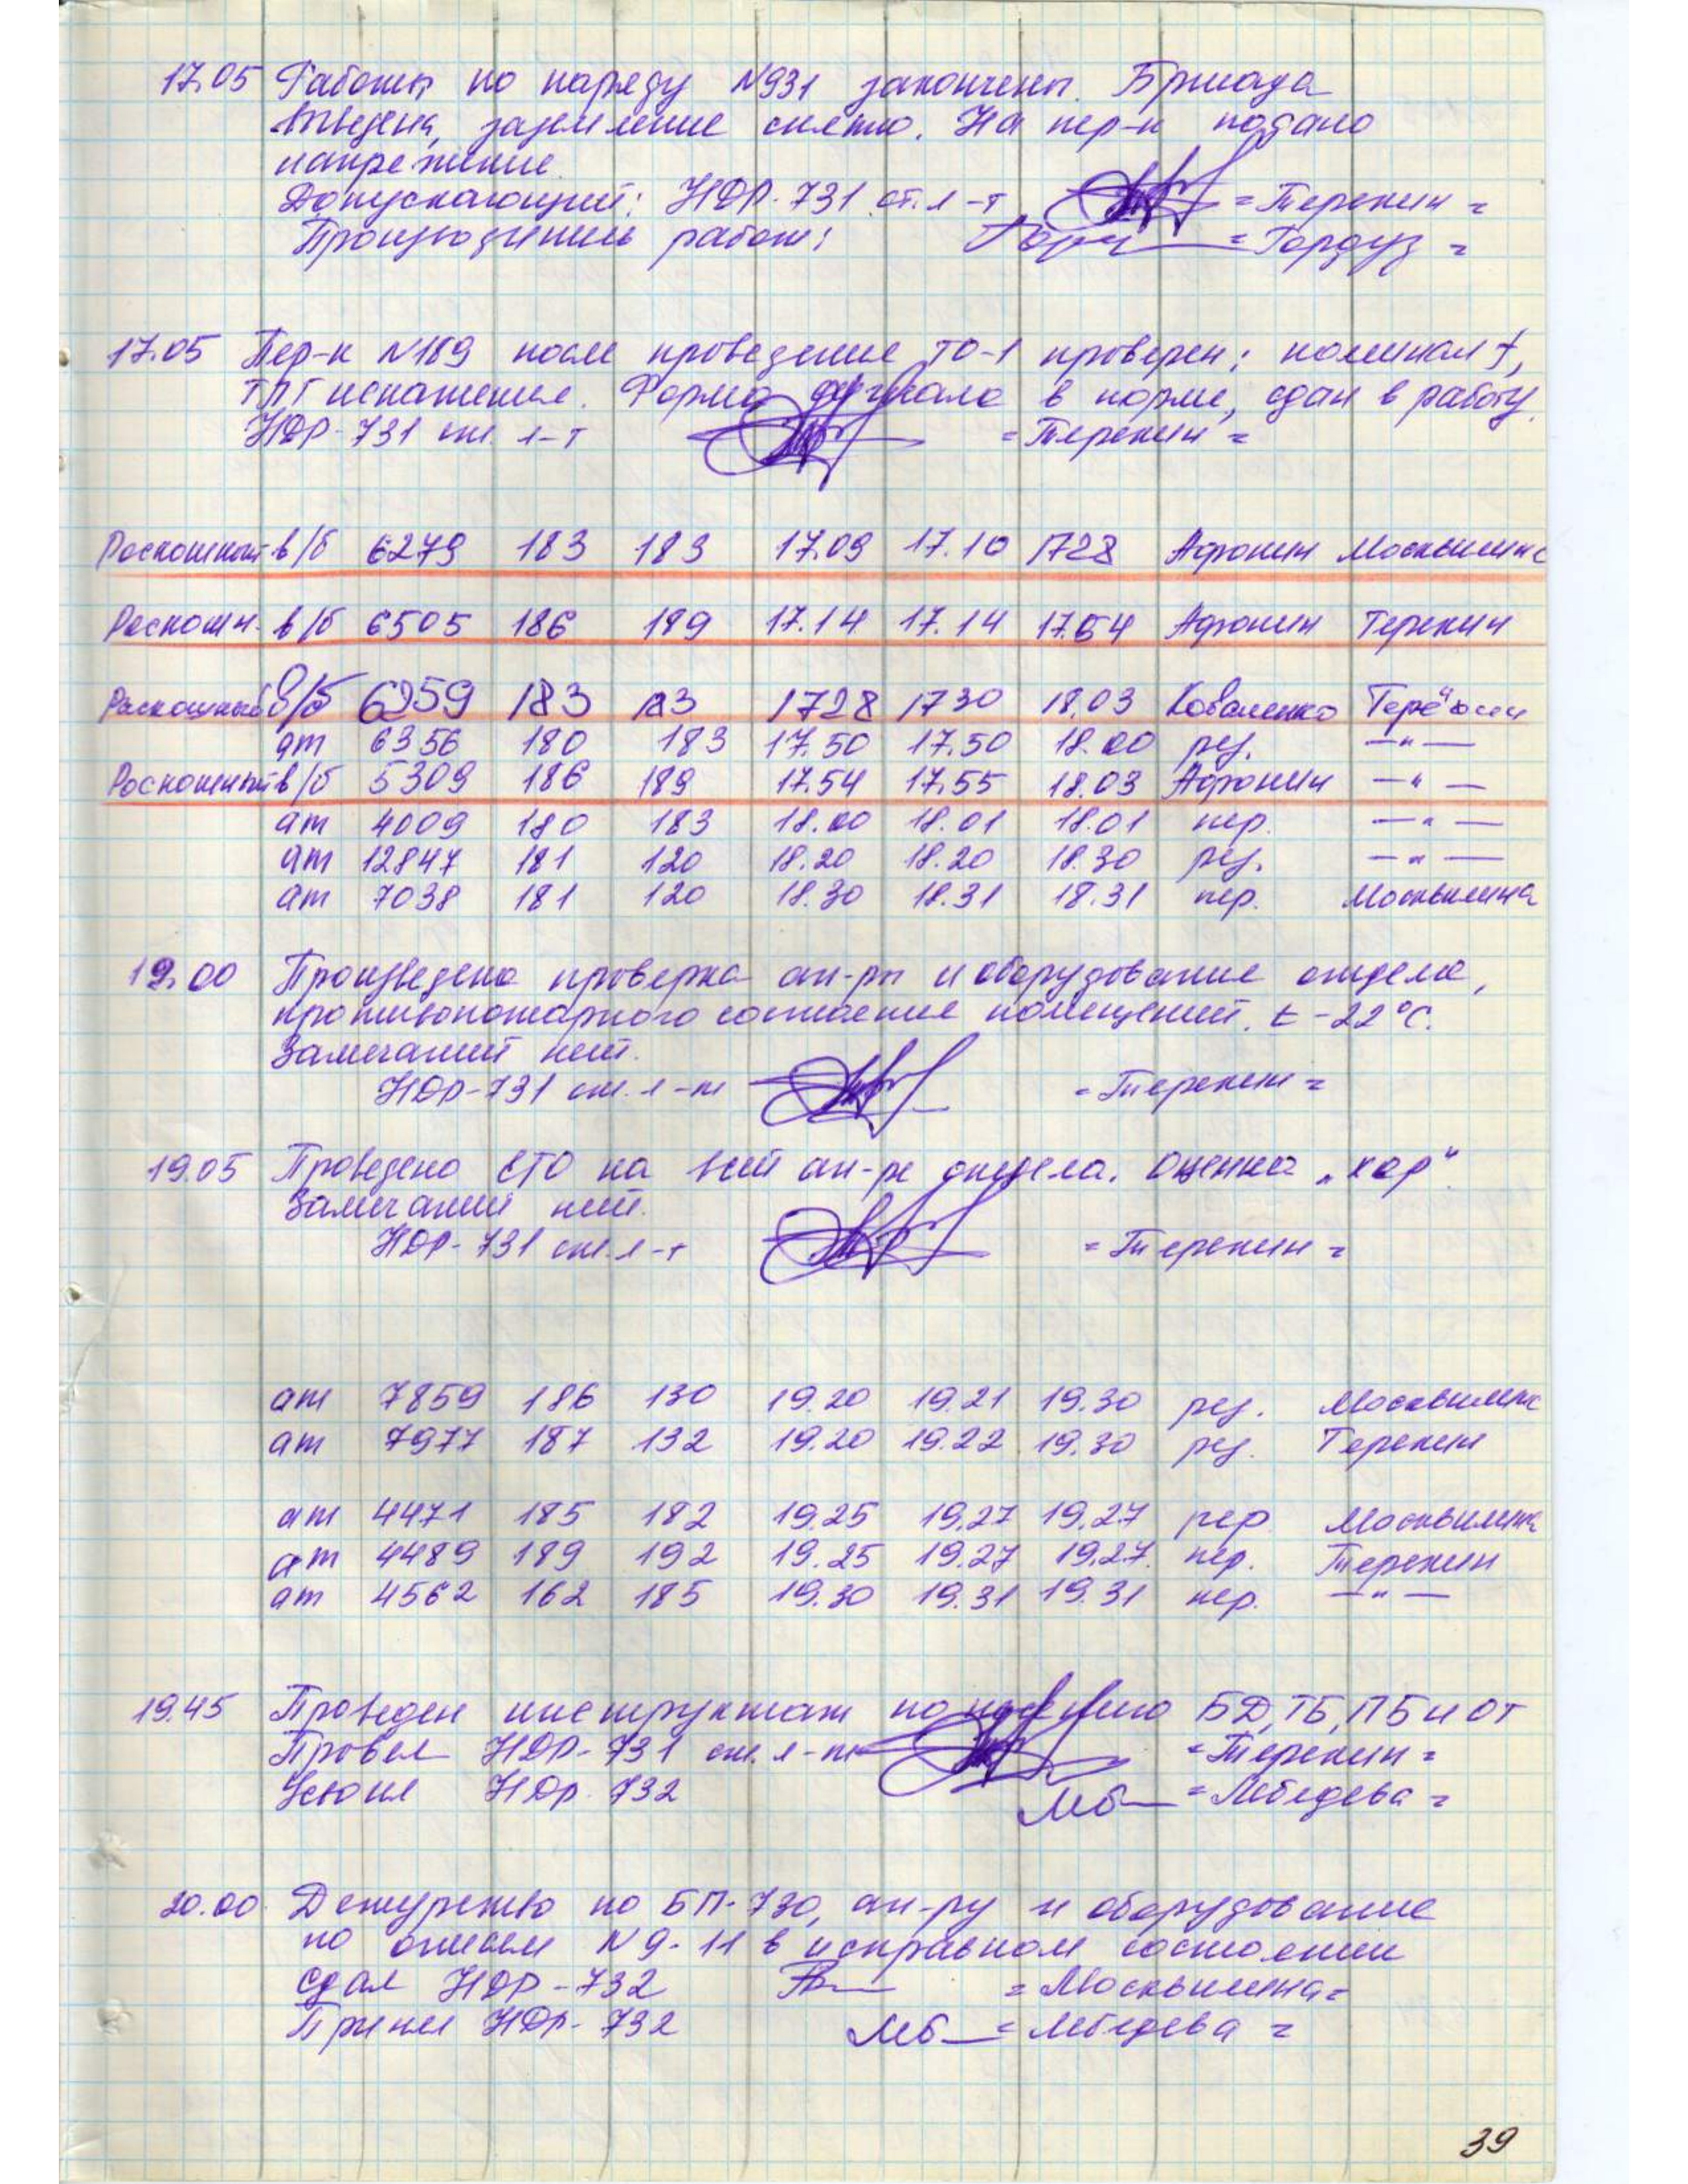 17.05 Работы по наряду N931 закончены. Бригада
выведена, заземление снято. На пер-к подано
напряжение.
Допускающий: НДР-731 ст. л-т =Терехин=
Производитель работ: =Гордуз=
17.05 Пер-к N189 после проведение ТО-1 проверен; номинал f,
ТЛГ искажения. Форма сигнала в норме, сдан в работу.
НДР-731 ст. л-т =Терехин=
Роскошный в/б 6279 183 183 17.09 17.10 1728 Афонин Москвитина
Роскошн. в/б 6505 186 189 17.14 17.14 17.54 Афонин Терехин
Роскошный в/б 6959 183 183 1728 1730 18.03 Коваленко Терёхин
ат 6356 180 183 17.50 17.50 18.00 рез. —"—
Роскошный в/б 5309 186 189 17.54 17.55 18.03 Афонин —"—
ат 4009 180 183 18.00 18.01 18.01 пер. —"—
ат 12847 181 120 18.20 18.20 18.30 рез. —"—
ат 7038 181 120 18.30 18.31 18.31 пер. Москвитина
19.00 Произведена проверка ап-ры и оборудование отдела,
противопожарного состояние помещений. t -22°С.
Замечаний нет.
НДР-731 ст. л-т =Терехин=
19.05 Проведено ЕТО на всей ап-ре отдела. Оценка „хор".
Замечаний нет.
НДР-731 ст. л-т =Терехин=
ат 7859 186 130 19.20 19.21 19.30 рез. Москвитина
ат 7977 187 132 19.20 19.22 19.30 рез. Терехин
ат 4471 185 182 19.25 19.27 19.27 пер Москвитина
ат 4489 189 192 19.25 19.27 19.27. пер. Терехин
ат 4562 162 185 19.30 19.31 19.31 пер. —"—
19.45 Проведен инструктаж по БД, ТБ, ПБ и ОТ
Провел НДР-731 ст. л-т =Терехин=
Усвоил НДр-732 =Лебедева=
20.00 Дежурство по БП-730, ап-ру и оборудование
по описям N 9-11 в исправном состоянии
Сдал НДР-732 =Москвитина=
Принял НДр-732 =Лебедева=
39